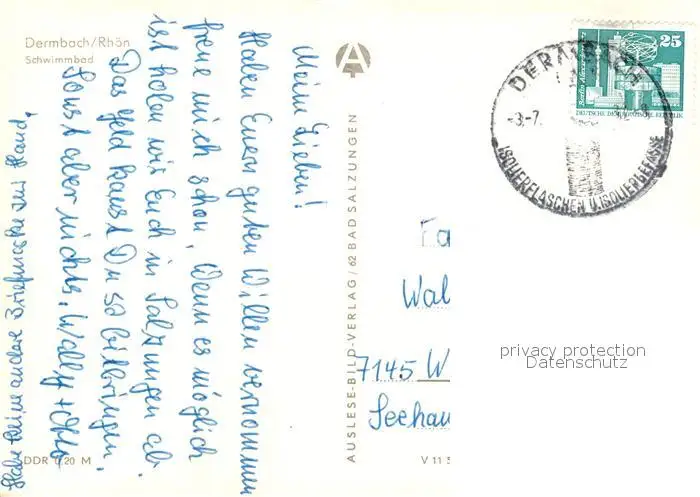 Dermbach/Rhön
Schwimmbad
Meine Lieben!
Haben Euern guten Willen vernommen
freue mich schon, Wenn es möglich
ist holen wir Euch in Salzungen ab.
Das Geld kannst Du so bringen,
Sonst aber nichts, Wally + Otto
Habe keine andere Briefmarke zur Hand,
DDR 0,20 M
AUSLESE-BILD-VERLAG / 62 BAD SALZUNGEN
V 11 3
25
Berlin Alexanderplatz
DEUTSCHE DEMOKRATISCHE REPUBLIK
DERMBACH
-3.-7.
ISOLIERFLASCHEN U. ISOLIERGEFÄSSE
Fa
Wal
7145 W
Seehau
privacy protection
Datenschutz